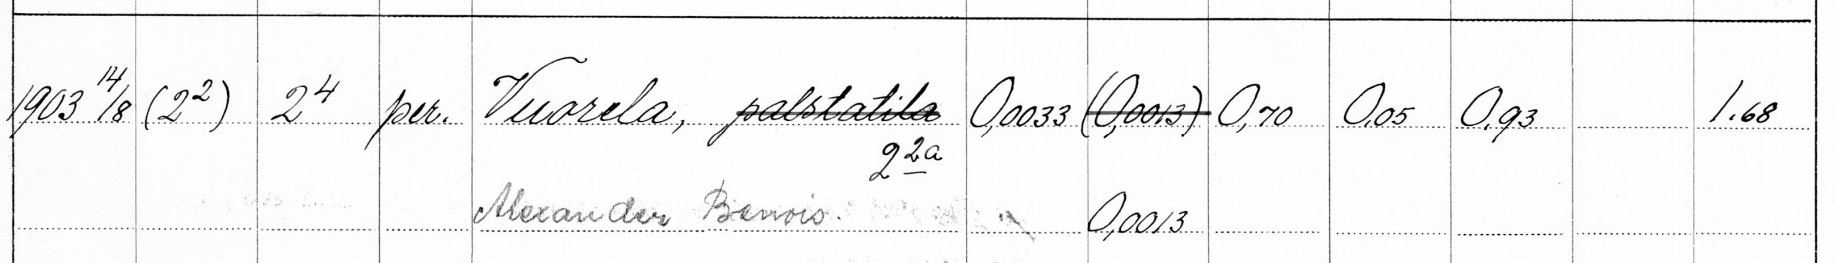 1903 14/8 (2²) 2⁴ per. Vuorela, palstatila 0,0033 (0,0013) 0,70 0,05 0,93 1.68
2²ᵃ
Alexander Benois. 0,0013